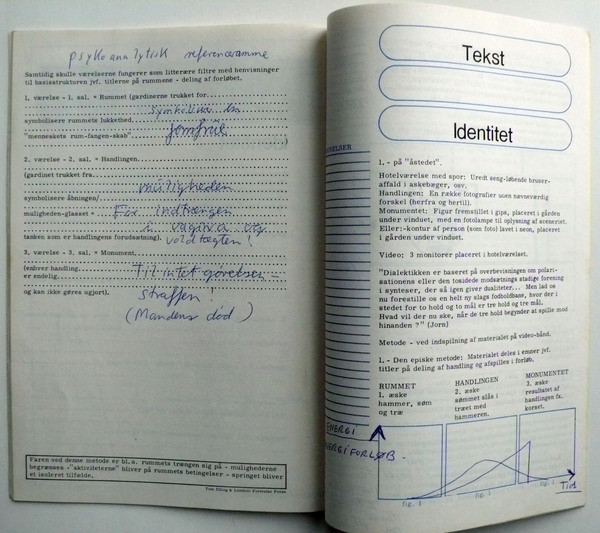 psykoanalytisk referenceramme
Samtidig skulle værelserne fungerer som litterære filtre med henvisninger
til basisstrukturen jvf. titlerne på rummene - deling af forløbet.
1. værelse - 1. sal. = Rummet (gardinerne trukket for
symbolisere rummets lukkethed
"menneskets rum-fangen-skab"
jomfrue
2. værelse - 2. sal. = Handlingen.
(gardinet trukket fra
muligheden
symbolisere åbningen/
muligheden-glasset = For indtrængen
i vagina og
tanken som er handlingens forudsætning).
voldtægten!
3. værelse - 3. sal. = Monument.
(enhver handling
er endelig.
Til intet gørelsen =
og kan ikke gøres ugjort).
straffen!
(Mandens død)
Faren ved denne metode er bl.a. rummets trængen sig på - mulighederne
begrænses - "aktiviteterne" bliver på rummets betingelser - springet bliver
et isoleret tilfælde.
Tekst
Identitet
1. - på "åstedet".
Hotelværelse med spor: Uredt seng-løbende bruser-
affald i askebæger, osv.
Handlingen: En række fotografier uden nævneværdig
forskel (herfra og hertil).
Monumentet: Figur fremstillet i gips, placeret i gården
under vinduet, med en fotolampe til oplysning af sceneriet.
Eller:-kontur af person (som foto) lavet i neon, placeret
i gården under vinduet.
Video; 3 monitorer placeret i hotelværelset.
"Dialektikken er baseret på overbevisningen om polari-
sationens eller den tosidede modsætnings stadige forening
i synteser, der så igen giver dualiteter... Men lad os
nu forestille os en helt ny slags fodboldbane, hvor der i
stedet for to hold og to mål er tre hold og tre mål.
Hvad vil der nu ske, når de tre hold begynder at spille mod
hinanden ?" (Jorn)
Metode - ved indspilning af materialet på video-bånd.
1. - Den episke metode: Materialet deles i emner jvf.
titler på deling af handling og afspilles i forløb.
RUMMET
1. æske
hammer, søm
og træ
HANDLINGEN
2. æske
sømmet slås i
træet med
hammeren.
MONUMENTET
3. æske
resultatet af
handlingen fx.
korset.
ENERGI
ENERGIFORLØB.
fig. 1
fig. 1
fig. 1
Tid